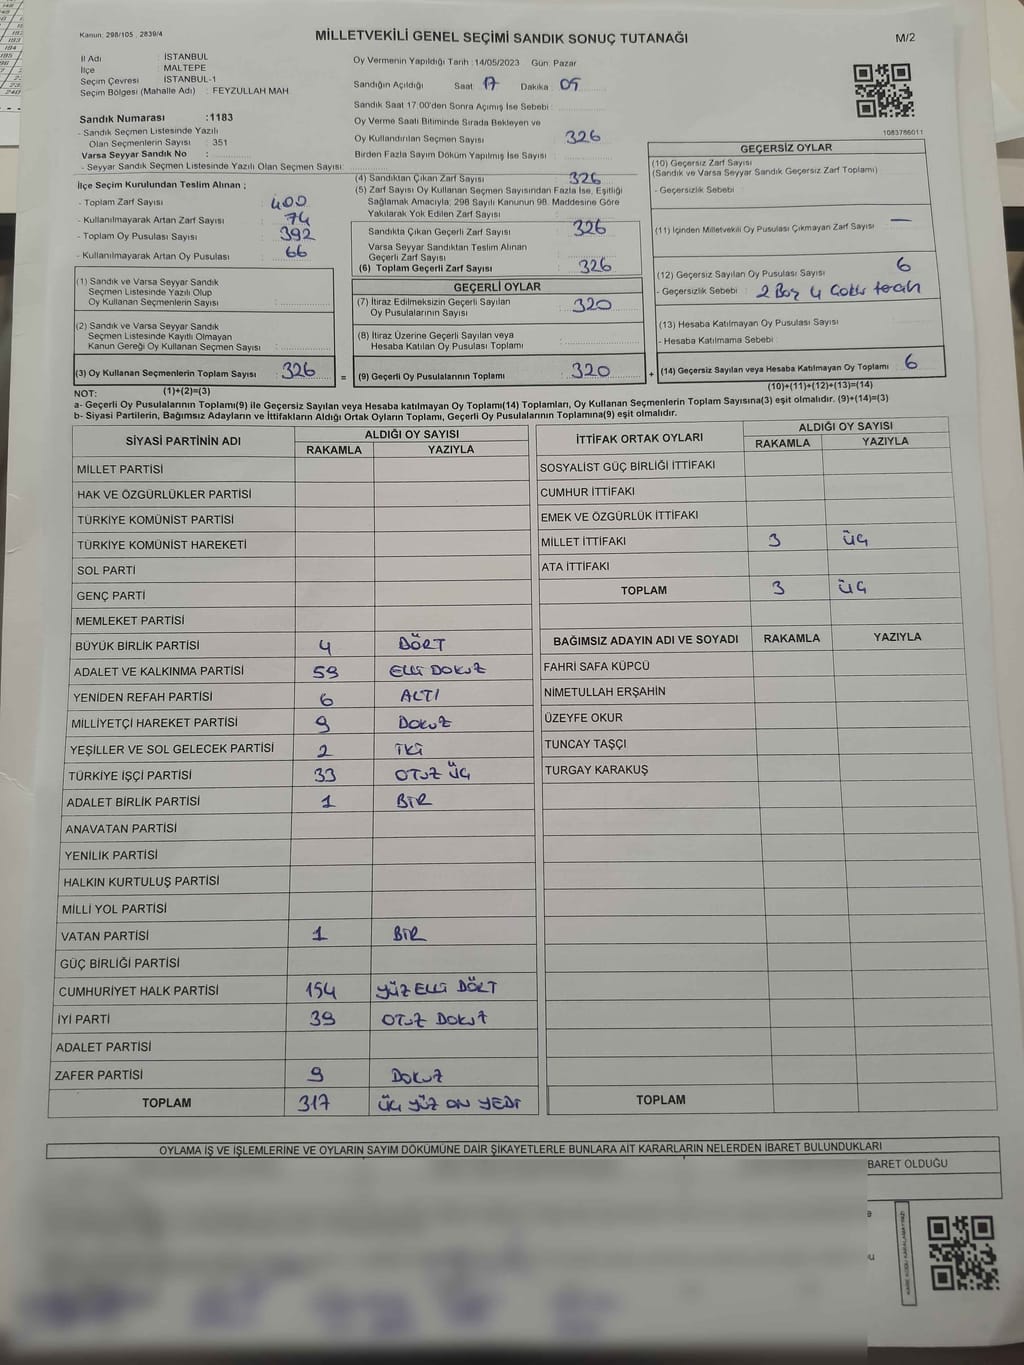 Kanun: 298/105 , 2839/4
MİLLETVEKİLİ GENEL SEÇİMİ SANDIK SONUÇ TUTANAĞI
M/2
İl Adı : İSTANBUL
İlçe : MALTEPE
Seçim Çevresi : İSTANBUL-1
Seçim Bölgesi (Mahalle Adı) : FEYZULLAH MAH.
Sandık Numarası :1183
- Sandık Seçmen Listesinde Yazılı
Olan Seçmenlerin Sayısı : 351
Varsa Seyyar Sandık No :
- Seyyar Sandık Seçmen Listesinde Yazılı Olan Seçmen Sayısı:
İlçe Seçim Kurulundan Teslim Alınan ;
- Toplam Zarf Sayısı : 400
- Kullanılmayarak Artan Zarf Sayısı : 74
- Toplam Oy Pusulası Sayısı : 392
- Kullanılmayarak Artan Oy Pusulası : 66
(1) Sandık ve Varsa Seyyar Sandık
Seçmen Listesinde Yazılı Olup
Oy Kullanan Seçmenlerin Sayısı :
(2) Sandık ve Varsa Seyyar Sandık
Seçmen Listesinde Kayıtlı Olmayan
Kanun Gereği Oy Kullanan Seçmen Sayısı :
(3) Oy Kullanan Seçmenlerin Toplam Sayısı : 326
(1)+(2)=(3)
Oy Vermenin Yapıldığı Tarih :14/05/2023 Gün: Pazar
Sandığın Açıldığı Saat 17 Dakika 05
Sandık Saat 17:00'den Sonra Açımış İse Sebebi :
Oy Verme Saati Bitiminde Sırada Bekleyen ve
Oy Kullandırılan Seçmen Sayısı : 326
Birden Fazla Sayım Döküm Yapılmış İse Sayısı :
(4) Sandıktan Çıkan Zarf Sayısı : 326
(5) Zarf Sayısı Oy Kullanan Seçmen Sayısından Fazla İse, Eşitliği
Sağlamak Amacıyla; 298 Sayılı Kanunun 98. Maddesine Göre
Yakılarak Yok Edilen Zarf Sayısı :
Sandıkta Çıkan Geçerli Zarf Sayısı : 326
Varsa Seyyar Sandıktan Teslim Alınan
Geçerli Zarf Sayısı :
(6) Toplam Geçerli Zarf Sayısı : 326
GEÇERLİ OYLAR
(7) İtiraz Edilmeksizin Geçerli Sayılan
Oy Pusulalarının Sayısı : 320
(8) İtiraz Üzerine Geçerli Sayılan veya
Hesaba Katılan Oy Pusulası Toplamı :
= (9) Geçerli Oy Pusulalarının Toplamı : 320
1083786011
GEÇERSİZ OYLAR
(10) Geçersiz Zarf Sayısı
(Sandık ve Varsa Seyyar Sandık Geçersiz Zarf Toplamı)
- Geçersizlik Sebebi
(11) İçinden Milletvekili Oy Pusulası Çıkmayan Zarf Sayısı : —
(12) Geçersiz Sayılan Oy Pusulası Sayısı : 6
- Geçersizlik Sebebi : 2 Boş 4 Çoklu tercih
(13) Hesaba Katılmayan Oy Pusulası Sayısı
- Hesaba Katılmama Sebebi
+ (14) Geçersiz Sayılan veya Hesaba Katılmayan Oy Toplamı : 6
(10)+(11)+(12)+(13)=(14)
NOT:
a- Geçerli Oy Pusulalarının Toplamı(9) ile Geçersiz Sayılan veya Hesaba katılmayan Oy Toplamı(14) Toplamları, Oy Kullanan Seçmenlerin Toplam Sayısına(3) eşit olmalıdır. (9)+(14)=(3)
b- Siyasi Partilerin, Bağımsız Adayların ve İttifakların Aldığı Ortak Oyların Toplamı, Geçerli Oy Pusulalarının Toplamına(9) eşit olmalıdır.
SİYASİ PARTİNİN ADI ALDIĞI OY SAYISI
RAKAMLA YAZIYLA
MİLLET PARTİSİ
HAK VE ÖZGÜRLÜKLER PARTİSİ
TÜRKİYE KOMÜNİST PARTİSİ
TÜRKİYE KOMÜNİST HAREKETİ
SOL PARTİ
GENÇ PARTİ
MEMLEKET PARTİSİ
BÜYÜK BİRLİK PARTİSİ 4 DÖRT
ADALET VE KALKINMA PARTİSİ 59 ELLİ DOKUZ
YENİDEN REFAH PARTİSİ 6 ALTI
MİLLİYETÇİ HAREKET PARTİSİ 9 DOKUZ
YEŞİLLER VE SOL GELECEK PARTİSİ 2 İKİ
TÜRKİYE İŞÇİ PARTİSİ 33 OTUZ ÜÇ
ADALET BİRLİK PARTİSİ 1 BİR
ANAVATAN PARTİSİ
YENİLİK PARTİSİ
HALKIN KURTULUŞ PARTİSİ
MİLLİ YOL PARTİSİ
VATAN PARTİSİ 1 BİR
GÜÇ BİRLİĞİ PARTİSİ
CUMHURİYET HALK PARTİSİ 154 YÜZ ELLİ DÖRT
İYİ PARTİ 39 OTUZ DOKUZ
ADALET PARTİSİ
ZAFER PARTİSİ 9 DOKUZ
TOPLAM 317 ÜÇ YÜZ ON YEDİ
İTTİFAK ORTAK OYLARI ALDIĞI OY SAYISI
RAKAMLA YAZIYLA
SOSYALİST GÜÇ BİRLİĞİ İTTİFAKI
CUMHUR İTTİFAKI
EMEK VE ÖZGÜRLÜK İTTİFAKI
MİLLET İTTİFAKI 3 ÜÇ
ATA İTTİFAKI
TOPLAM 3 ÜÇ
BAĞIMSIZ ADAYIN ADI VE SOYADI RAKAMLA YAZIYLA
FAHRİ SAFA KÜPCÜ
NİMETULLAH ERŞAHİN
ÜZEYFE OKUR
TUNCAY TAŞÇI
TURGAY KARAKUŞ
TOPLAM
OYLAMA İŞ VE İŞLEMLERİNE VE OYLARIN SAYIM DÖKÜMÜNE DAİR ŞİKAYETLERLE BUNLARA AİT KARARLARIN NELERDEN İBARET BULUNDUKLARI
BARET OLDUĞU